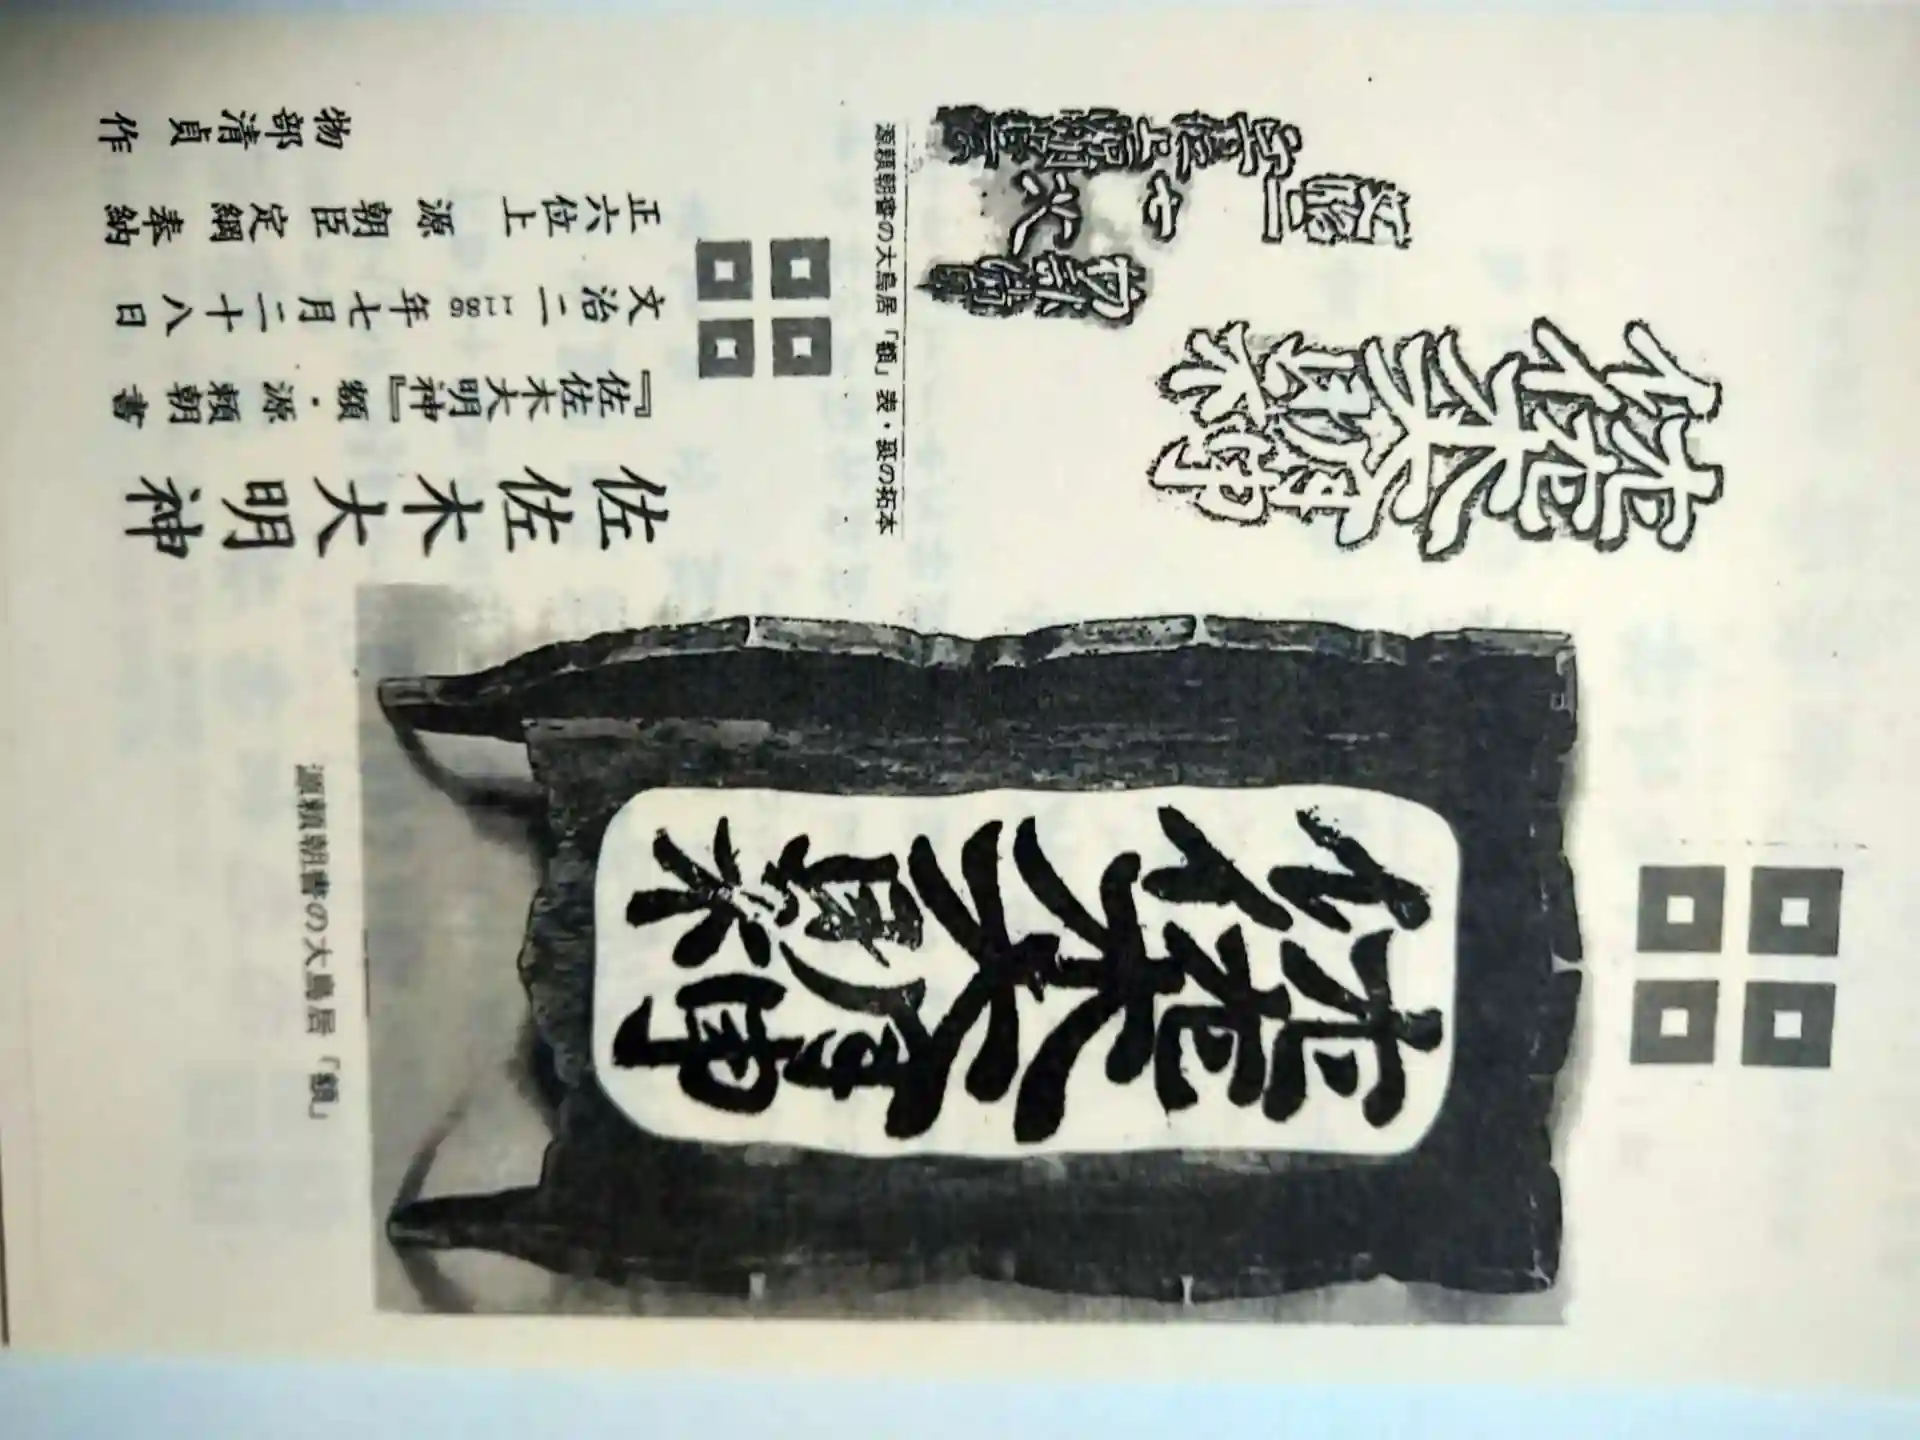 佐佐木大明神
源頼朝書の大鳥居「額」
佐佐木大明神
源頼朝書の大鳥居「額」表・裏の拓本
佐佐木大明神
『佐佐木大明神』額・源 頼朝 書
文治二1186年七月二十八日
正六位上 源 朝臣 定綱 奉納
物部清貞 作